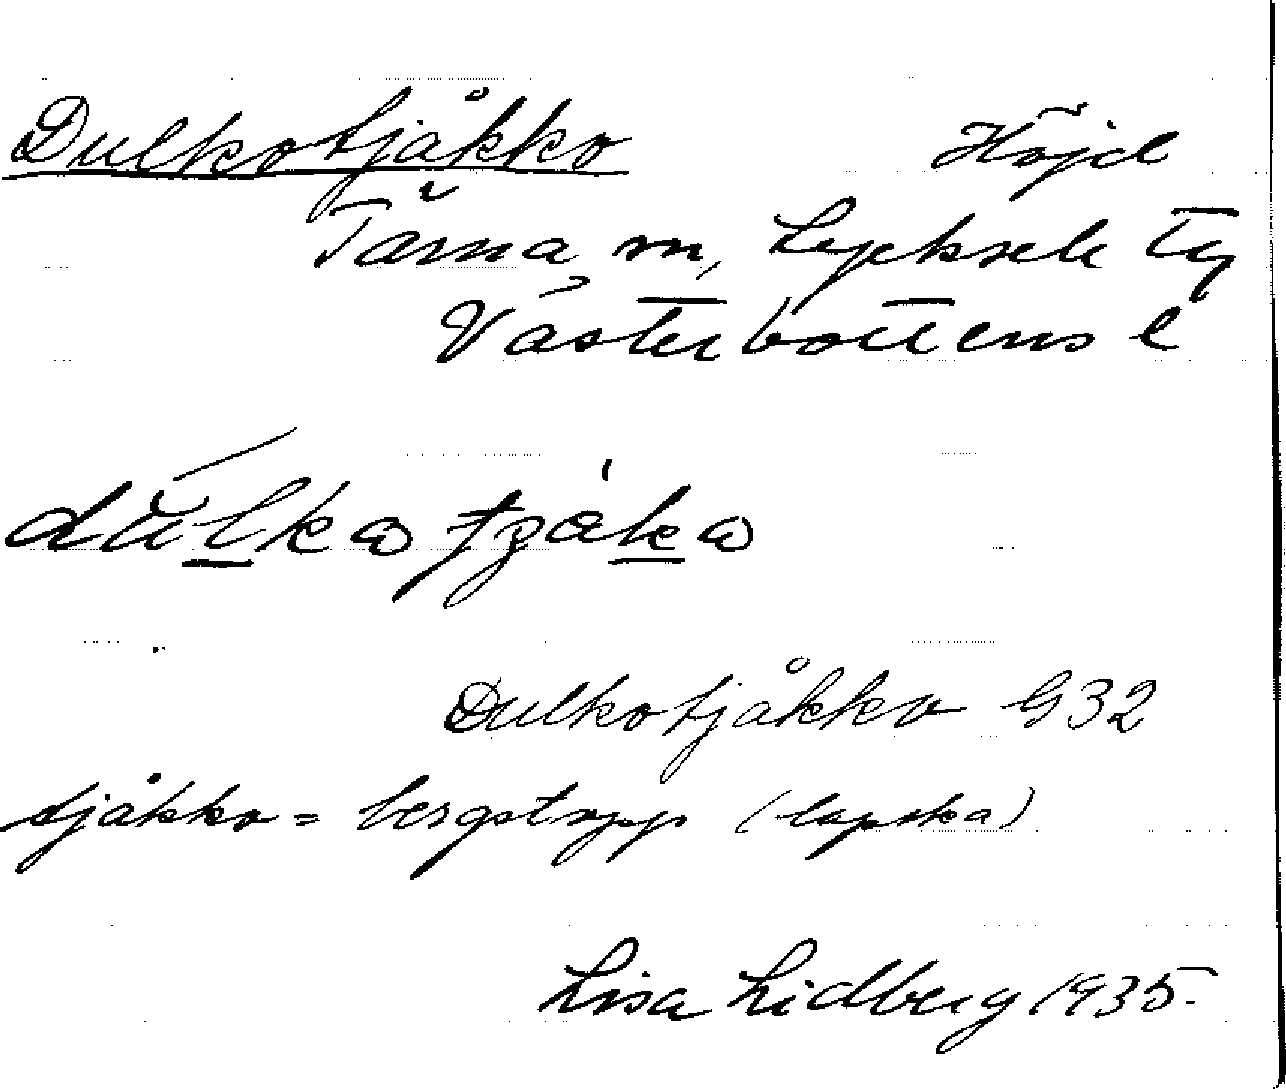 Dulkotjåkko Höjd
Tärna sn, Lycksele Tg
Västerbottens l
Dulkotjåkko G32
tjåkko = bergstopp (lapska)
Lisa Lidberg 1935.